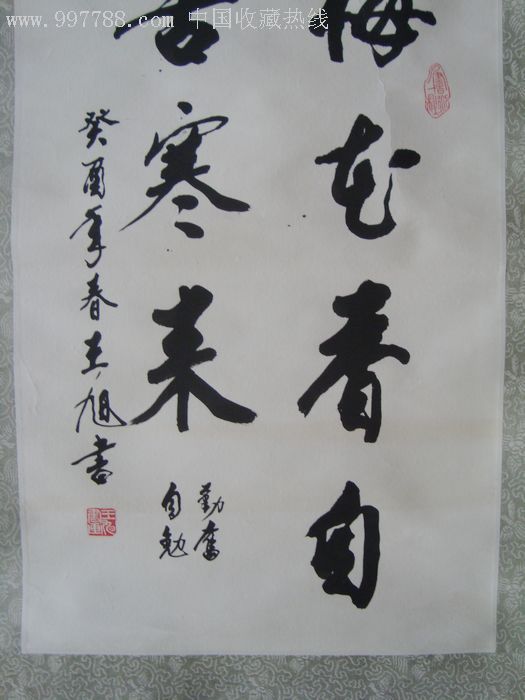 www.997788.com 中国收藏热线
梅花香自
苦寒来
勤奮
自勉
癸酉年春王旭書